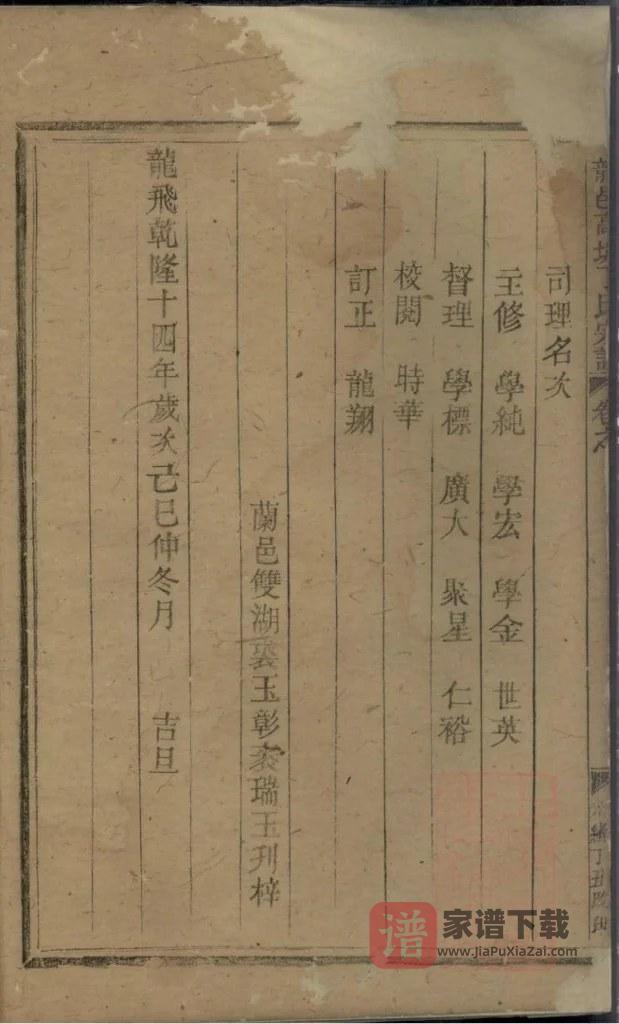 司理名次
主修 學純 學宏 學金 世英
督理 學標 廣大 聚星 仁裕
校閱 時華
訂正 龍翔
蘭邑雙湖裘玉彰裘瑞玉刋梓
龍飛乾隆十四年歲次己巳仲冬月 吉旦
龍邑高 丁氏宗譜 卷之
緒丁丑
谱 家谱下载
www.JiaPuXiaZai.com